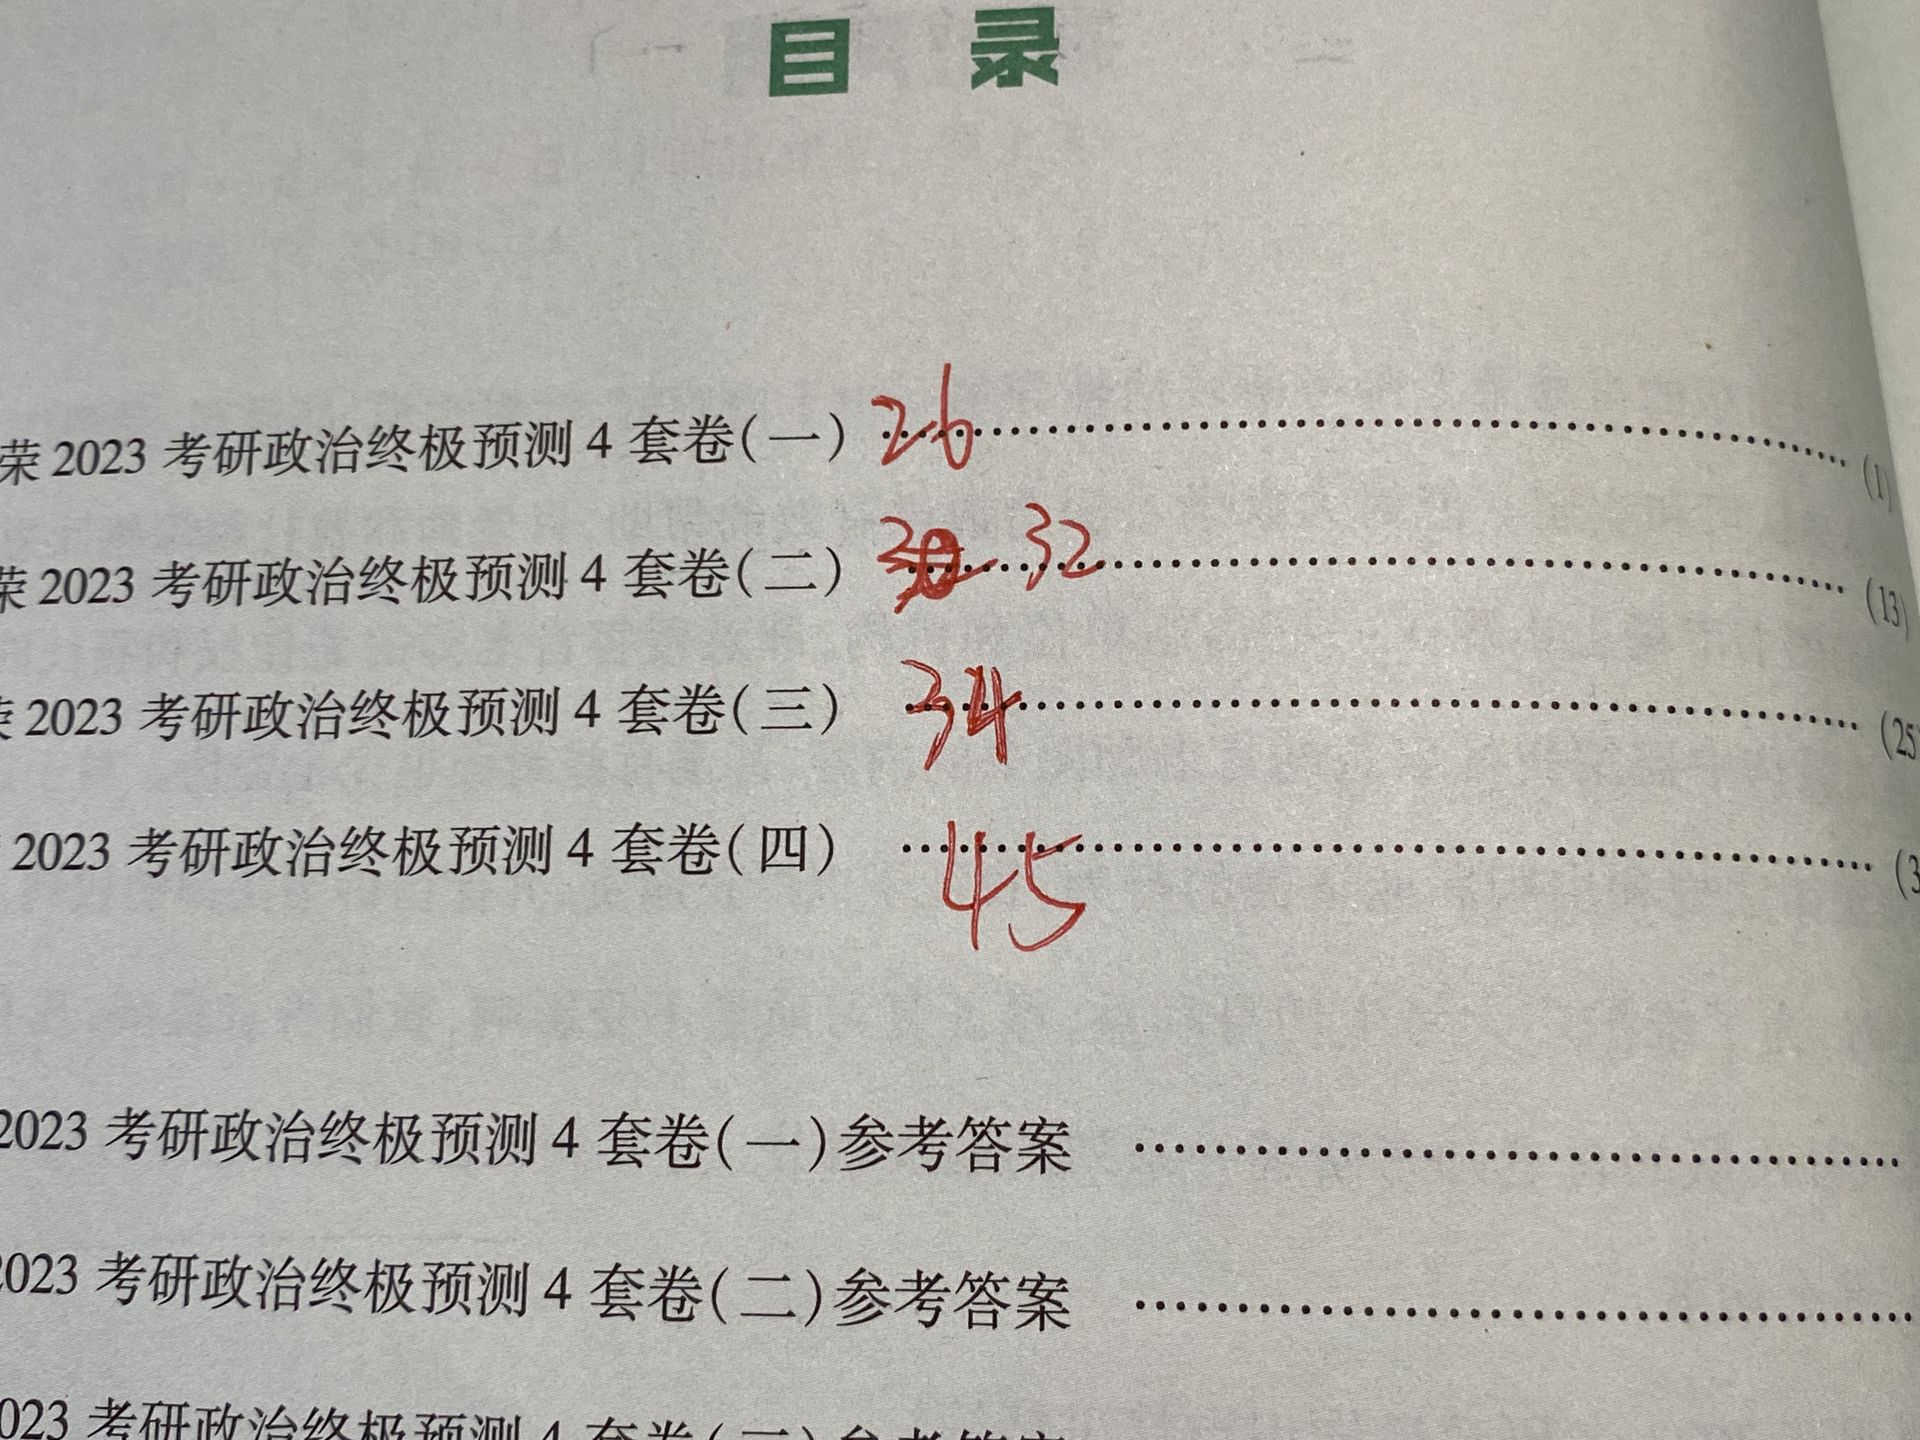 目 录
荣 2023 考研政治终极预测 4 套卷(一) 26 (1)
荣 2023 考研政治终极预测 4 套卷(二) 32 (13)
荣 2023 考研政治终极预测 4 套卷(三) 34 (25
2023 考研政治终极预测 4 套卷(四) 45 (3
2023 考研政治终极预测 4 套卷(一)参考答案
2023 考研政治终极预测 4 套卷(二)参考答案
023 考研政治终极预测 4 套卷(三)参考答案